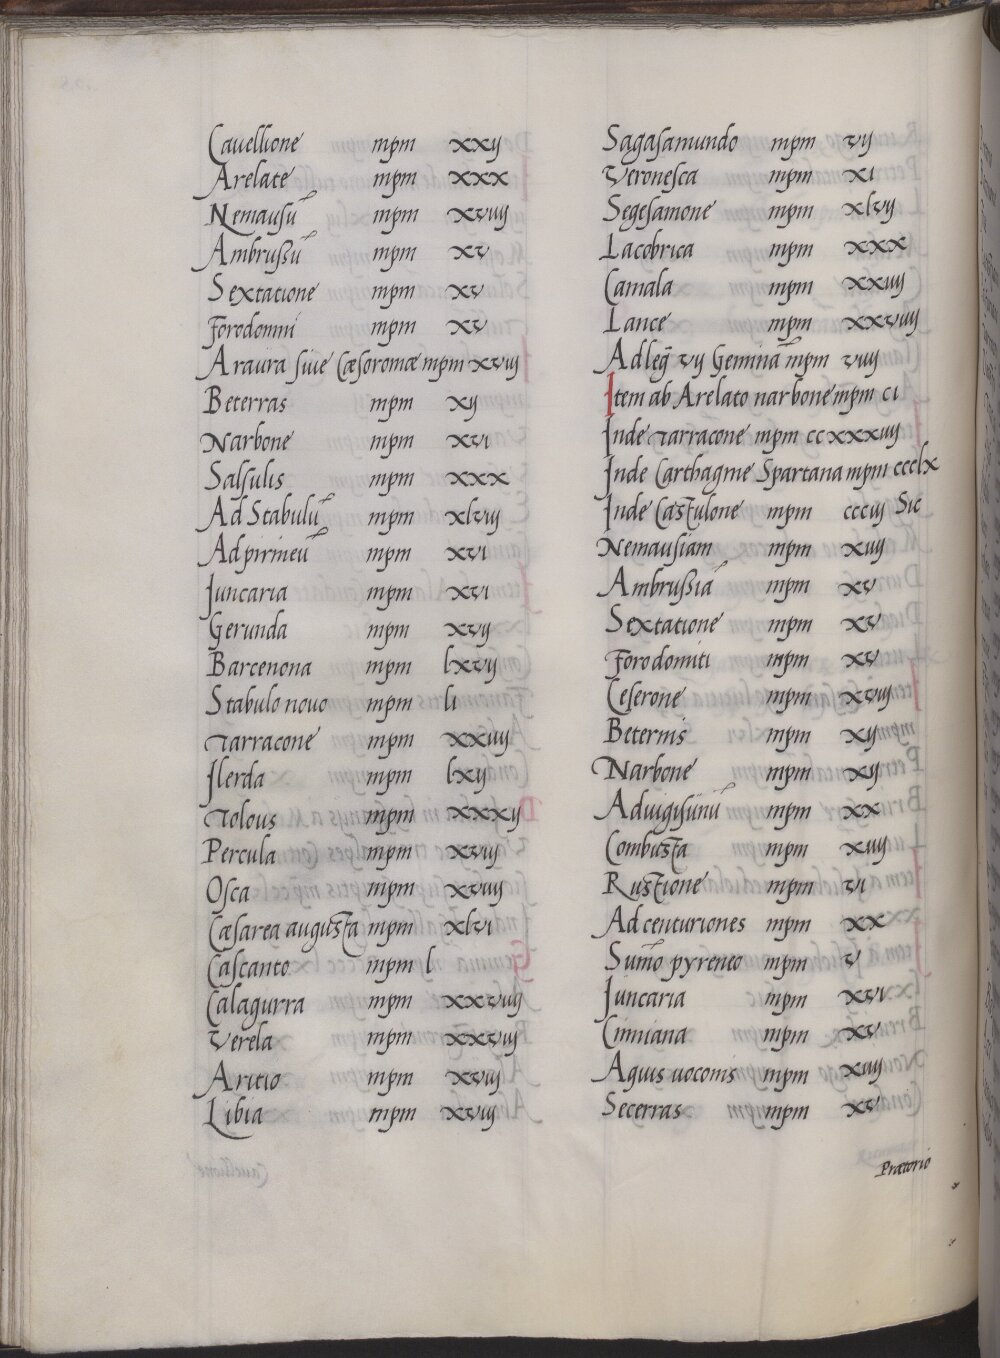 Cauellione mpm xxij
Arelate mpm xxx
Nemausū mpm xviiij
Ambrussū mpm xv
Sextatione mpm xv
Forodomni mpm xv
Araura siue Cæsoromæ mpm xviij
Beterras mpm xij
Narbone mpm xvi
Salsulis mpm xxx
Ad Stabulū mpm xlviij
Ad pirineū mpm xvi
Juncaria mpm xvi
Gerunda mpm xvij
Barcenona mpm lxvij
Stabulo nouo mpm li
Tarracone mpm xxiiij
Jlerda mpm lxij
Tolous mpm xxxij
Percula mpm xviij
Osca mpm xviiij
Cæsarea augusta mpm xlvi
Cascanto mpm l
Calagurra mpm xxviiij
Verela mpm xxviij
Aritio mpm xviij
Libia mpm xviij
Sagasamundo mpm vij
Veronesca mpm xi
Segesamone mpm xlvij
Lacobrica mpm xxx
Camala mpm xxiiij
Lance mpm xxviiij
Ad legē vij Geminā mpm viiij
Item ab Arelato narbone mpm ci
Inde Tarracone mpm ccxxxiiij
Inde Carthagine Spartana mpm ccclx
Inde Castulone mpm ccciij Sic
Nemausiam mpm xiiij
Ambrussiā mpm xv
Sextatione mpm xv
Foro domiti mpm xv
Ceserone mpm xviij
Beternis mpm xij
Narbone mpm xij
Aduigisinū mpm xx
Combusta mpm xiiij
Rustione mpm vi
Ad centuriones mpm xx
Sumō pyreneo mpm v
Juncaria mpm xvi
Cinniana mpm xv
Aquis uoconis mpm xiiij
Secerras mpm xv
Prætorio